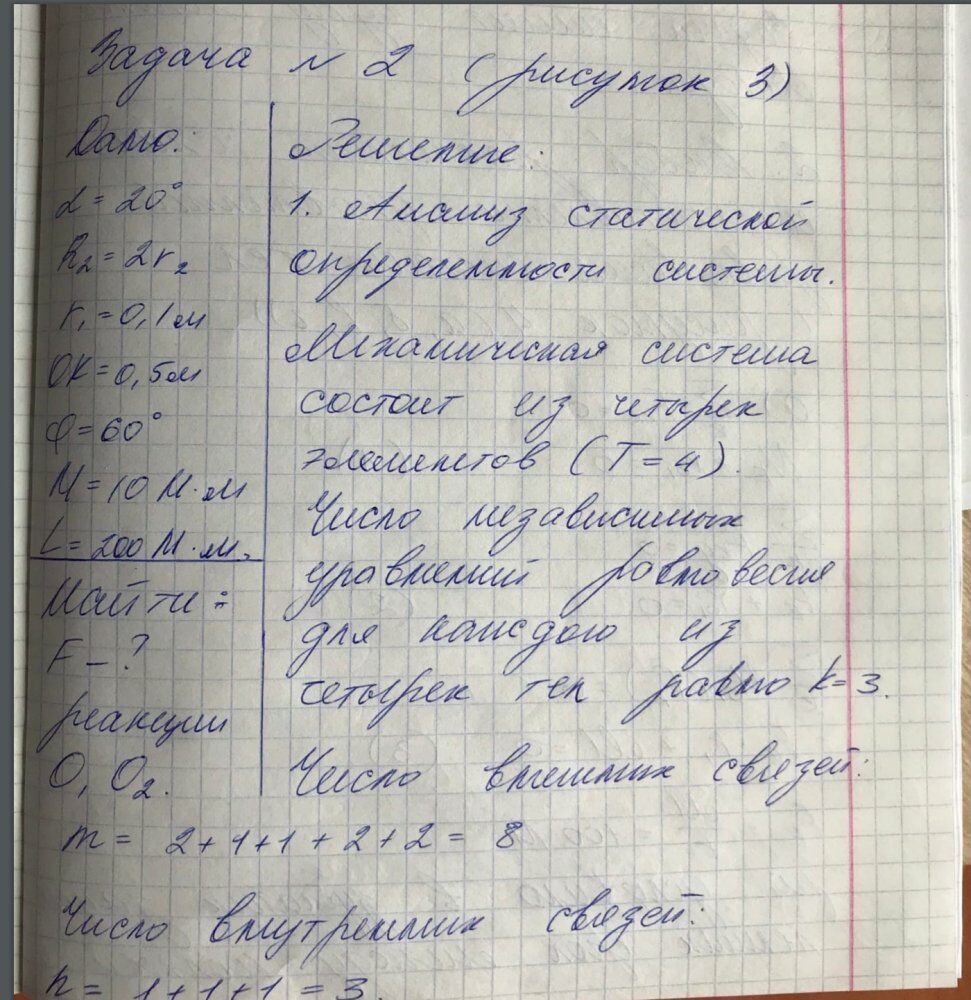 Задача № 2 (рисунок 3)
Дано:
α = 20°
R₂ = 2r₂
r₁ = 0,1м
OK = 0,5м
φ = 60°
M = 10 Н·м
L = 200 Н·м.
Найти:
F - ?
реакции
O, O₂.
Решение:
1. Анализ статической
определенности системы.
Механическая система
состоит из четырех
элементов (T = 4).
Число независимых
уравнений равновесия
для каждого из
четырех тел равно k = 3.
Число внешних связей:
m = 2+1+1+2+2 = 8
Число внутренних связей:
n = 1+1+1 = 3.